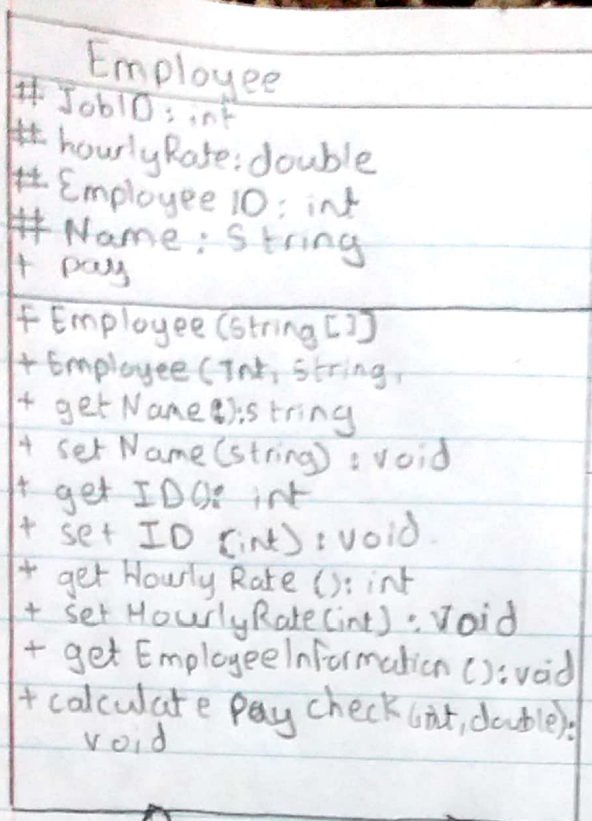 Employee
# JobID: int
# hourlyRate: double
# Employee ID: int
# Name: String
+ pay
+ Employee (String []]
+ Employee (Int, String,
+ getName(): string
+ set Name (string) : void
+ get ID(): int
+ set ID (int) : void.
+ get Hourly Rate (): int
+ set HourlyRate (int) : Void
+ get EmployeeInformation (): void
+ calculate pay check (int, double):
void